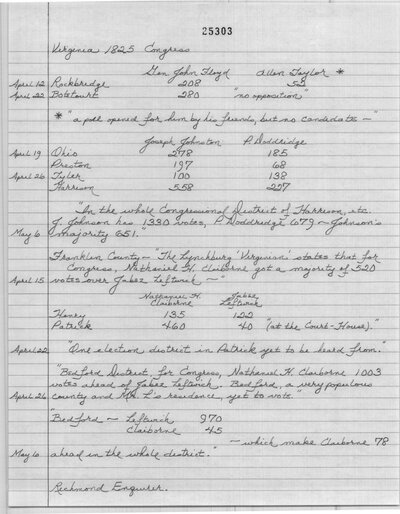 25303
Virginia 1825 Congress
Gen John Floyd Allen Taylor *
April 12 Rockbridge 208 52
April 22 Botetourt 280 "no opposition"
* "a poll opened for him by his friends, but no candidate —"
Joseph Johnston P. Doddridge
April 19 Ohio 278 185
Preston 197 68
April 26 Tyler 100 138
Harrison 558 227
"In the whole Congressional district of Harrison, etc.
J. Johnson has 1330 votes, P. Doddridge 679 — Johnson's
May 6 majority 651."
Franklin County — "The Lynchburg 'Virginian' states that for
Congress, Nathaniel H. Claiborne got a majority of 520
April 15 votes over Jabez Leftwich —"
Nathaniel H. Jabez
Claiborne Leftwich
Henry 135 122
Patrick 460 40 (at the Court-House)."
April 22 "One election district in Patrick yet to be heard from."
"Bedford District, for Congress, Nathaniel H. Claiborne 1003
votes ahead of Jabez Leftwich. Bedford, a very populous
April 26 county and Mr L's residence, yet to vote."
"Bedford — Leftwich 970
Claiborne 45
— which make Claiborne 78
May 6 ahead in the whole district."
Richmond Enquirer.